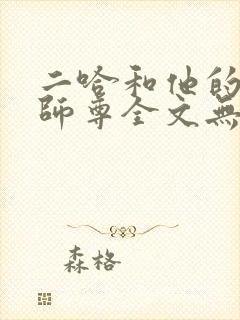 二哈和他的
師尊全文無
森格